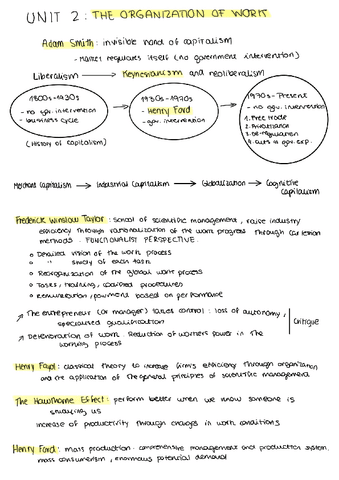 UNIT 2: THE ORGANIZATION OF WORK
Adam Smith: invisible hand of capitalism
- Market regulates itself (no government intervention)
Liberalism → Keynesianism and neoliberalism
1800s-1930s
- no gov. intervention
- business cycle
1930s-1970s
- Henry Ford
- gov. intervention
1970s-Present
- no gov. intervention
1. Free trade
2. Privatization
3. De-regulation
4. cuts in gov. exp.
(History of capitalism)
Merchant capitalism → Industrial capitalism → Globalization → Cognitive
capitalism
Frederick Winslow Taylor: School of scientific management, raise industry
efficiency through rationalization of the work progress through
methods. FUNCIONALIST PERSPECTIVE.
o Detailed vision of the work process
o " study of each task
o Reorganization of the global work process
o Tasks, training, codified procedures
o remuneration/payment based on performance
The entrepreneur (or manager) takes control: loss of autonomy,
specialised qualification
Deterioration of work. Reduction of workers power in the
working process
Critique
Henry Fayol: classical theory to increase firm's efficiency through organization
and the application of the general principles of scientific management
The Hawthorne Effect: perform better when we know someone is
studying us
increase of productivity through changes in work conditions
Henry Ford: mass production. comprehensive management and production system.
mass consumerism, enormous potential demand